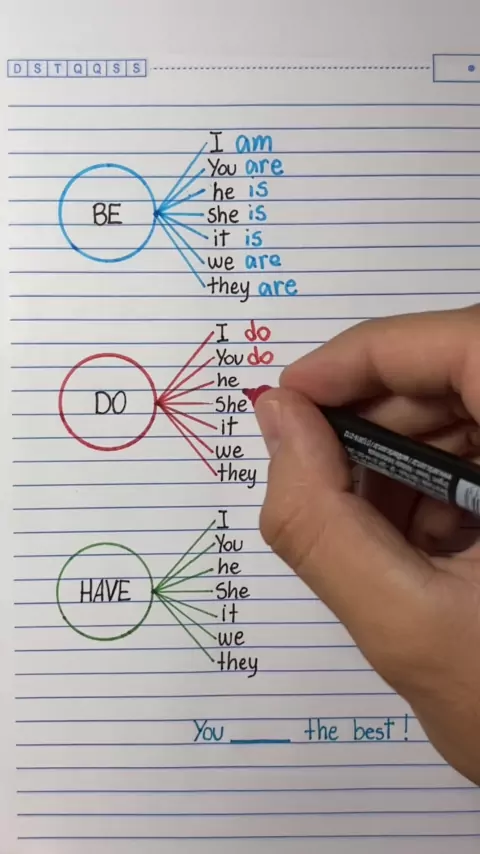 D S T Q Q S S
BE
I am
You are
he is
she is
it is
we are
they are
DO
I do
You do
he
She
it
we
they
HAVE
I
You
he
She
it
we
they
You _____ the best!